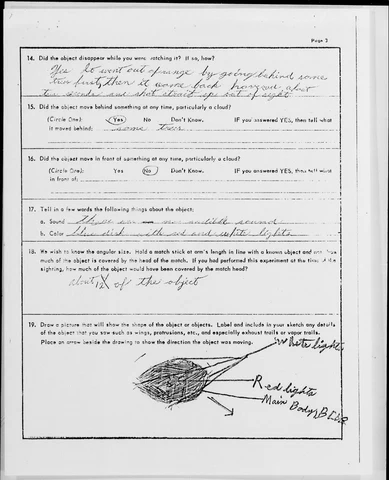 Page 3
14. Did the object disappear while you were watching it? If so, how?
Yes It went out of range by going behind some
tree first, then it came back hovered about
ten seconds and shot strait up out of sight
15. Did the object move behind something at any time, particularly a cloud?
(Circle One): Yes No Don't Know. IF you answered YES, then tell what
it moved behind: some trees
16. Did the object move in front of something at any time, particularly a cloud?
(Circle One): Yes No Don't Know. IF you answered YES, then tell what
in front of:
17. Tell in a few words the following things about the object:
a. Sound there was no audible sound
b. Color blue disk with red and white lights
18. We wish to know the angular size. Hold a match stick at arm's length in line with a known object and
much of the object is covered by the head of the match. If you had performed this experiment at the time
sighting, how much of the object would have been covered by the match head?
about of the object
19. Draw a picture that will show the shape of the object or objects. Label and include in your sketch any details
of the object that you saw such as wings, protrusions, etc., and especially exhaust trails or vapor trails.
Place an arrow beside the drawing to show the direction the object was moving.
White lights
Red lights
Main Body, BLUE